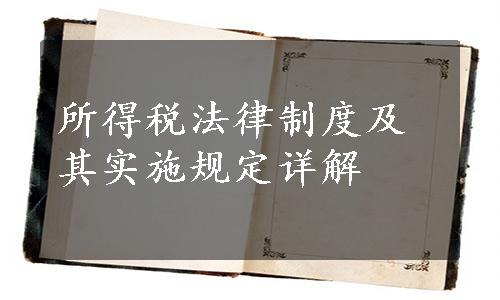 所得税法律制度及
其实施规定详解